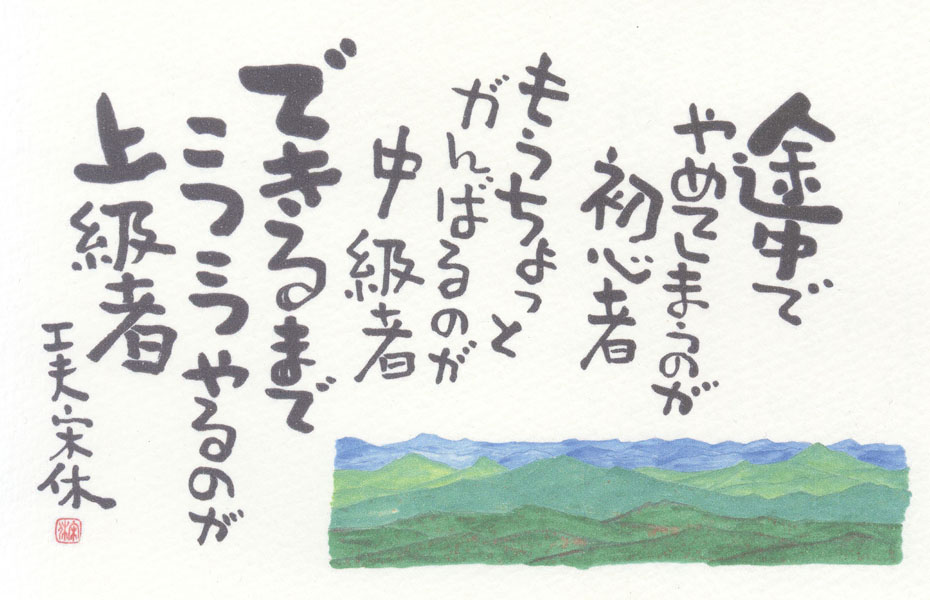 途中で
やめてしまうのが
初心者
もうちょっと
がんばるのが
中級者
できるまで
こつこつやるのが
上級者
工夫宋休